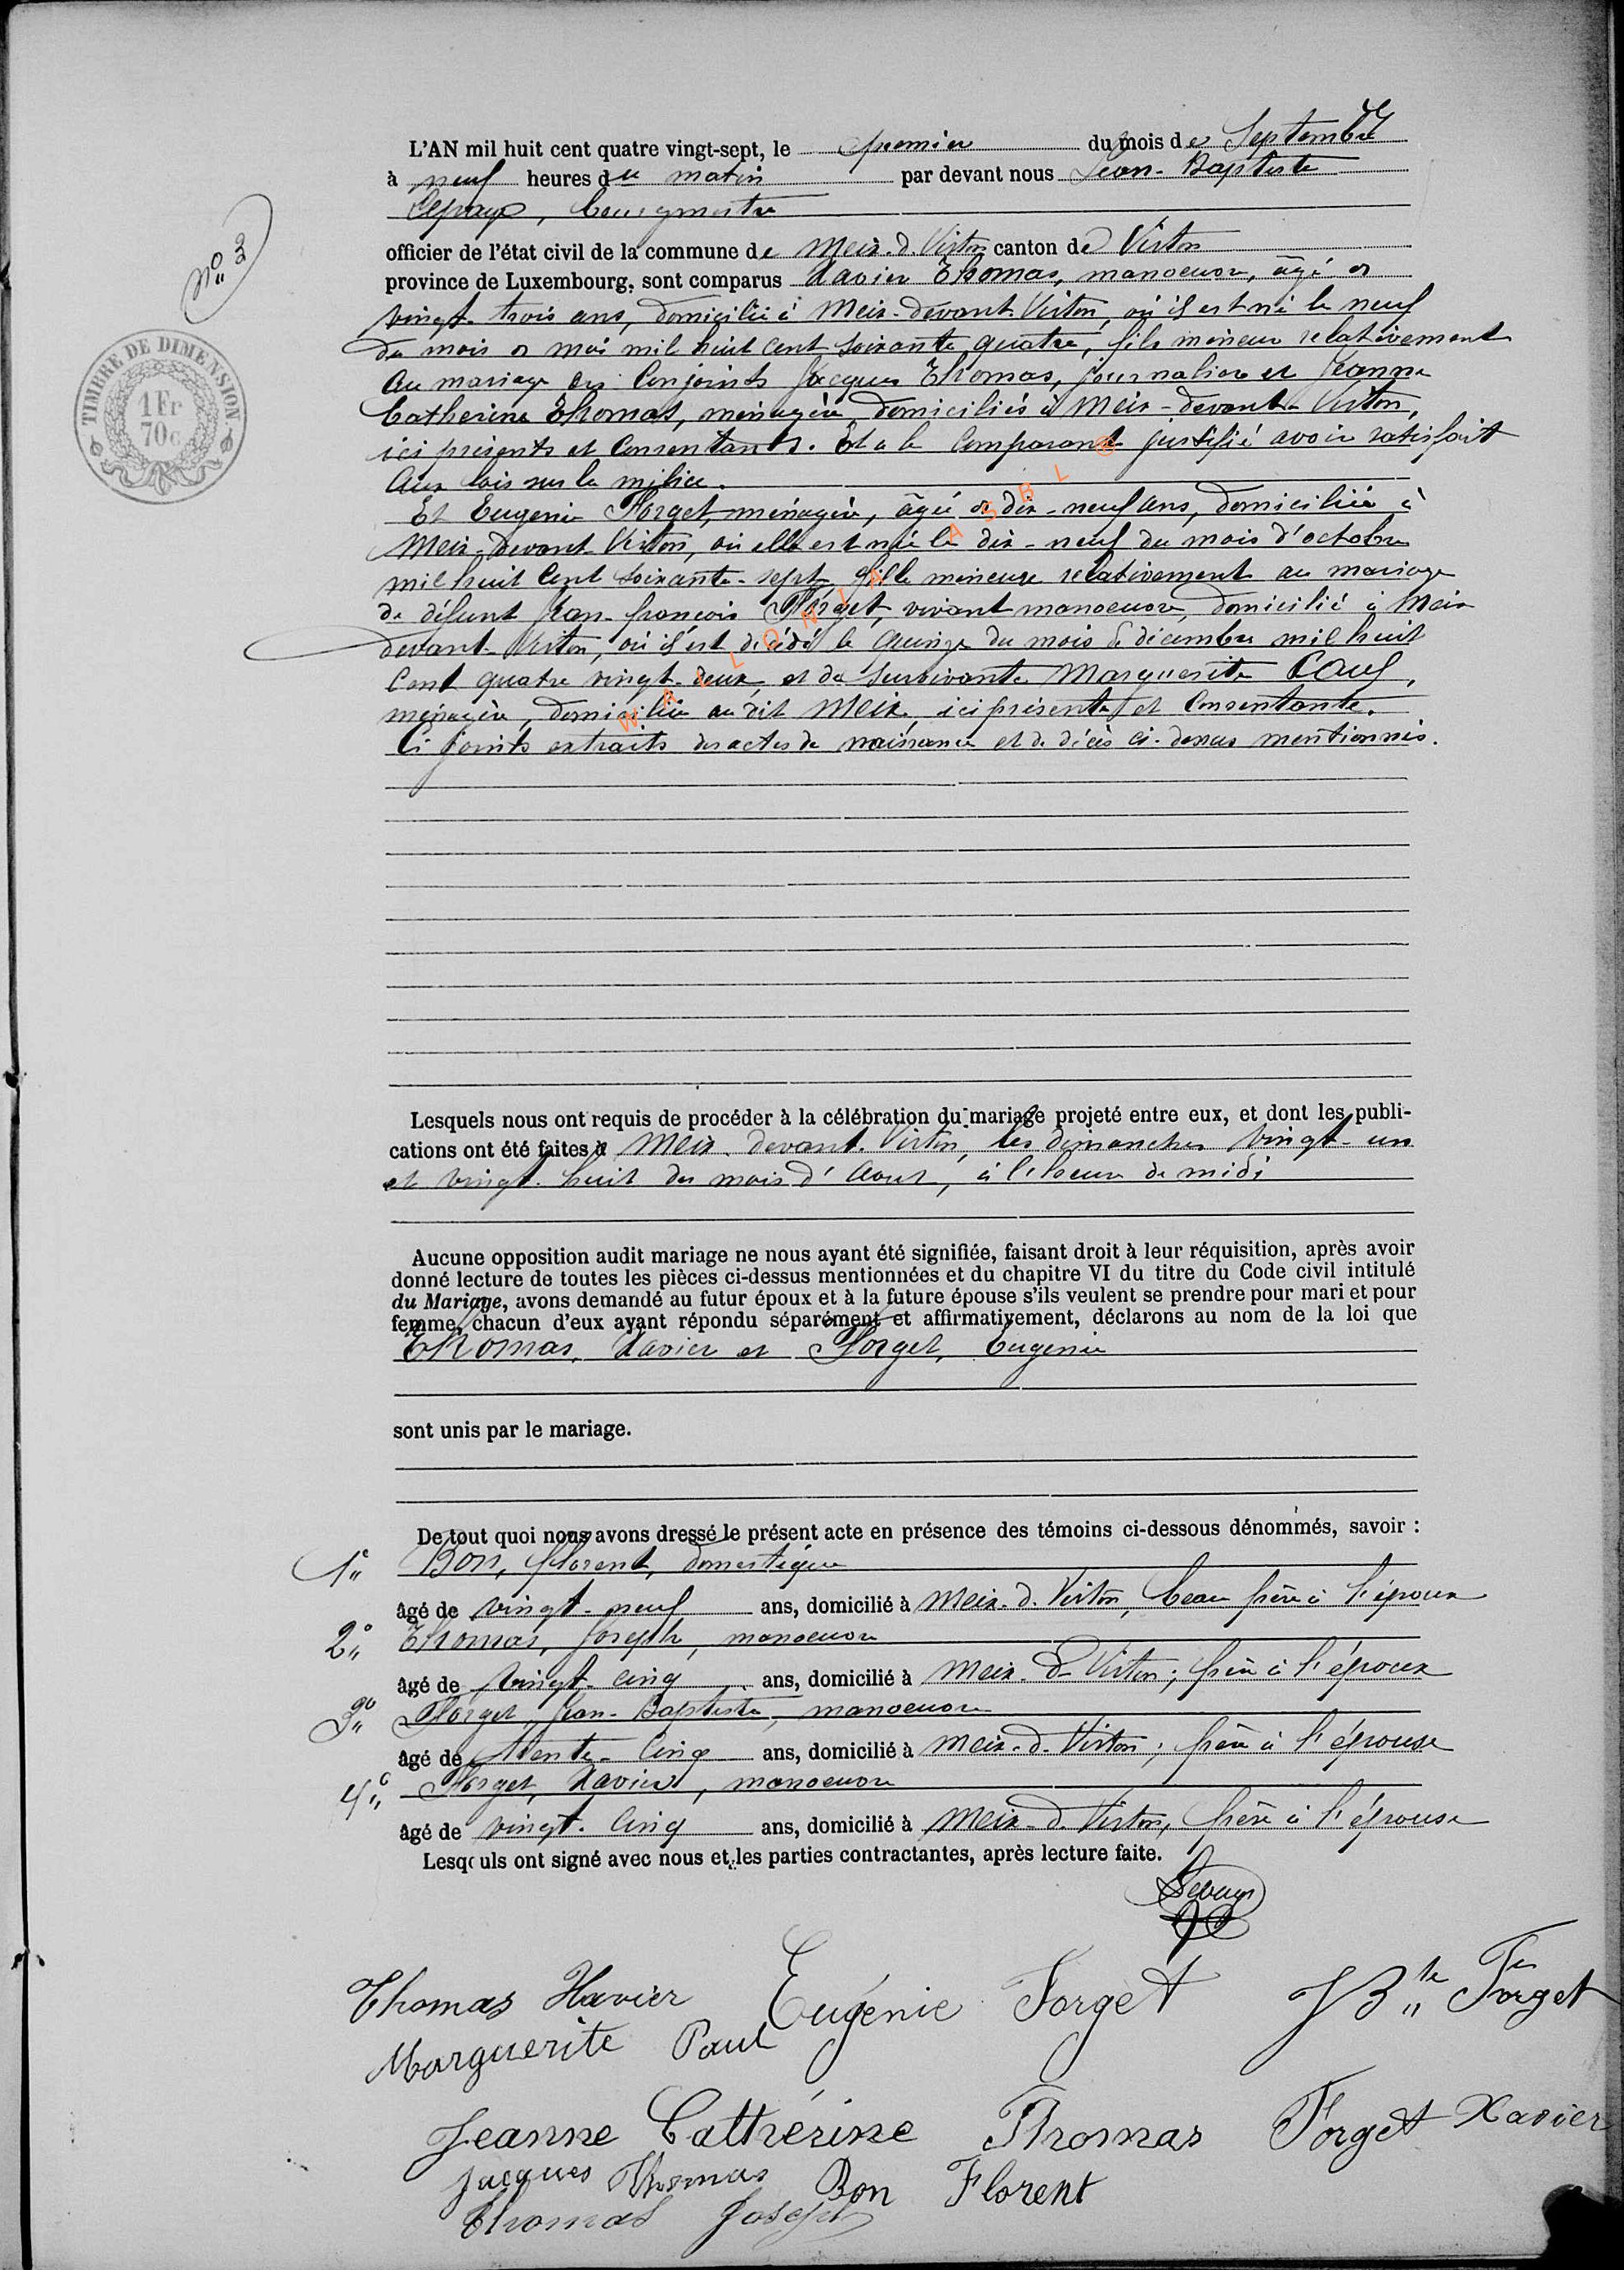 L'AN mil huit cent quatre vingt-sept, le premier du mois de Septembre
à neuf heures du matin par devant nous Jean-Baptiste
Lepage, bourgmestre
officier de l'état civil de la commune de Meix-d-Virton canton de Virton
province de Luxembourg, sont comparus Xavier Thomas, manoeuvre, âgé de
vingt-trois ans, domicilié à Meix-devant-Virton, où il est né le neuf
du mois de mai mil huit cent soixante quatre, fils mineur relativement
au mariage des conjoints Jacques Thomas, journalier et Jeanne
Catherine Thomas, ménagère, domiciliés à Meix-devant-Virton,
ici présents et consentants. Et a le comparant justifié avoir satisfait
aux lois sur la milice.
Et Eugenie Florget, ménagère, âgée de dix-neuf ans, domiciliée à
Meix-devant Virton, où elle est née le dix-neuf du mois d'octobre
mil huit cent soixante-sept, fille mineure relativement au mariage
de défunt Jean-françois Florget, vivant manoeuvre, domicilié à Meix
devant-Virton, où il est décédé le quinze du mois de décembre mil huit
cent quatre vingt-deux, et de survivante Marguerite Paul,
ménagère, domiciliée au dit Meix, ici présente et consentante.
Ci joints extraits des actes de naissance et de décès ci-dessus mentionnés.
N° 3
TIMBRE DE DIMENSION
1 Fr
70 c
WALLONIA ASBL ©
Lesquels nous ont requis de procéder à la célébration du mariage projeté entre eux, et dont les publi-
cations ont été faites à Meix-devant-Virton, les dimanches vingt-un
et vingt-huit du mois d'Aout, à l'heure de midi
Aucune opposition audit mariage ne nous ayant été signifiée, faisant droit à leur réquisition, après avoir
donné lecture de toutes les pièces ci-dessus mentionnées et du chapitre VI du titre du Code civil intitulé
du Mariage, avons demandé au futur époux et à la future épouse s'ils veulent se prendre pour mari et pour
femme, chacun d'eux ayant répondu séparément et affirmativement, déclarons au nom de la loi que
Thomas, Xavier et Florget, Eugenie
sont unis par le mariage.
De tout quoi nous avons dressé le présent acte en présence des témoins ci-dessous dénommés, savoir :
1° Bon, florent, domestique
âgé de vingt-neuf ans, domicilié à Meix-d-Virton, beau frère à l'époux
2° Thomas, Joseph, manoeuvre
âgé de vingt-cinq ans, domicilié à Meix-d-Virton, frère à l'époux
3° Florget, Jean-Baptiste, manoeuvre
âgé de trente-cinq ans, domicilié à Meix-d-Virton, frère à l'épouse
4° Florget, Xavier, manoeuvre
âgé de vingt-cinq ans, domicilié à Meix-d-Virton, frère à l'épouse
Lesquels ont signé avec nous et les parties contractantes, après lecture faite.
Thomas Xavier Eugénie Forget J Bte Forget
Marguerite Paul
Jeanne Cathérine Thomas Forget Xavier
Jacques Thomas Bon Florent
Thomas Joseph